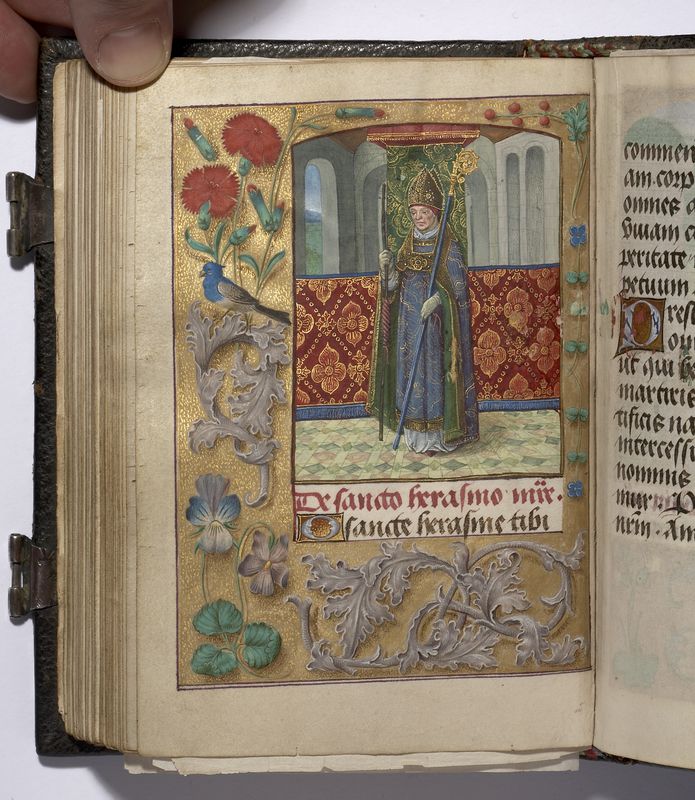 De sancto herasmo mr̅e.
O sancte herasme tibi
commen
am corp
omnes
peritate
petuum
Pres
ut qui be
martiris
tificis na
intercessi
nominis
mur
nrin . Am